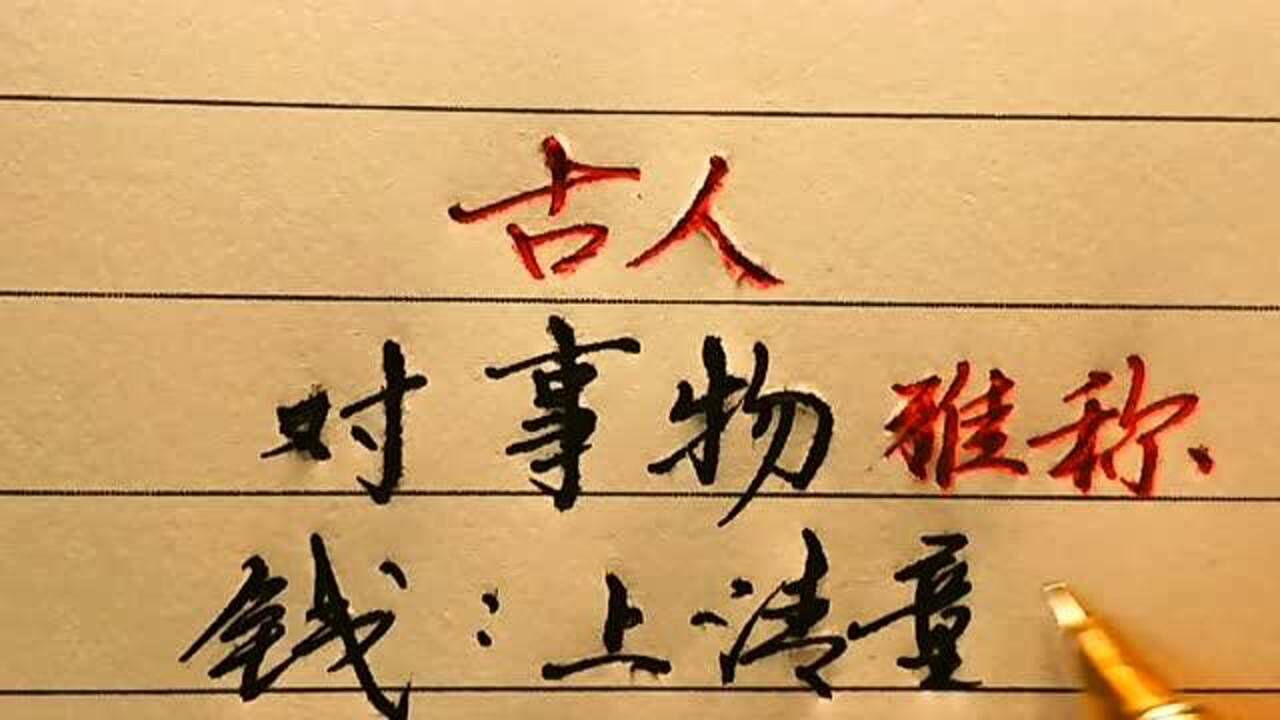 古人
对事物雅称
钱：上清童